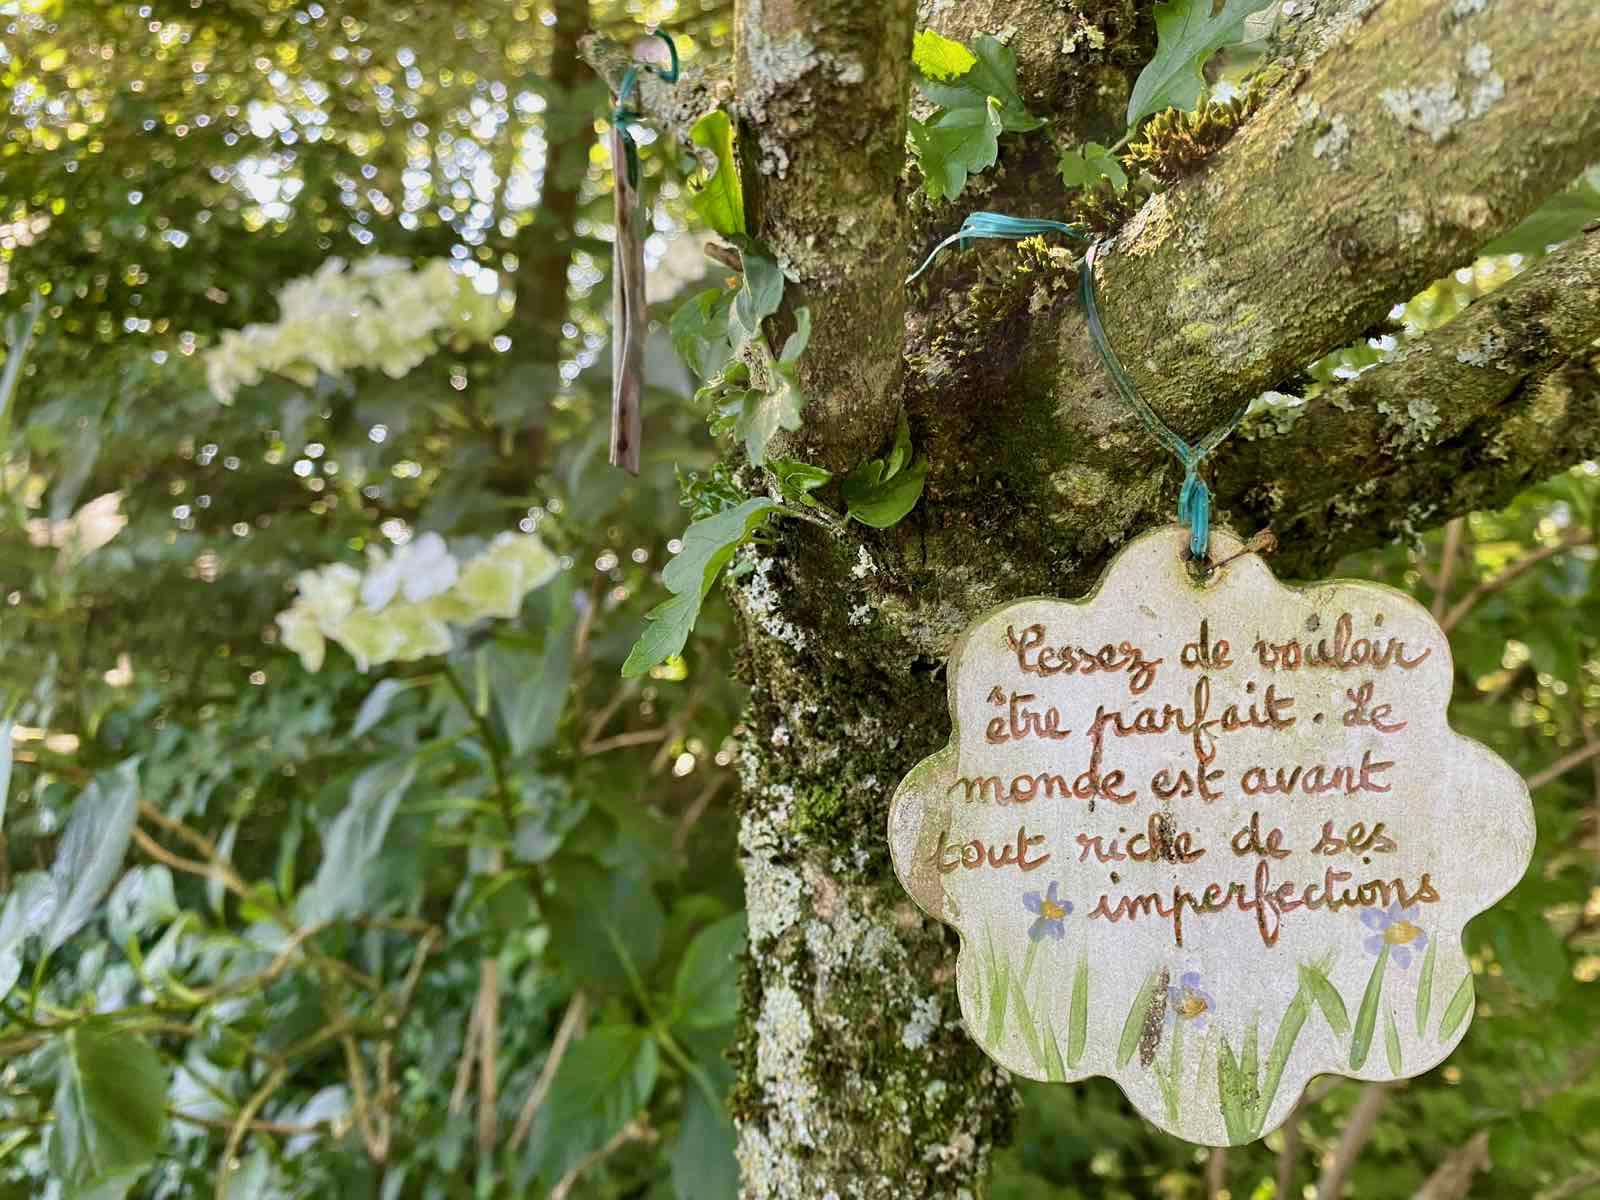 Cessez de vouloir
être parfait. Le
monde est avant
tout riche de ses
imperfections